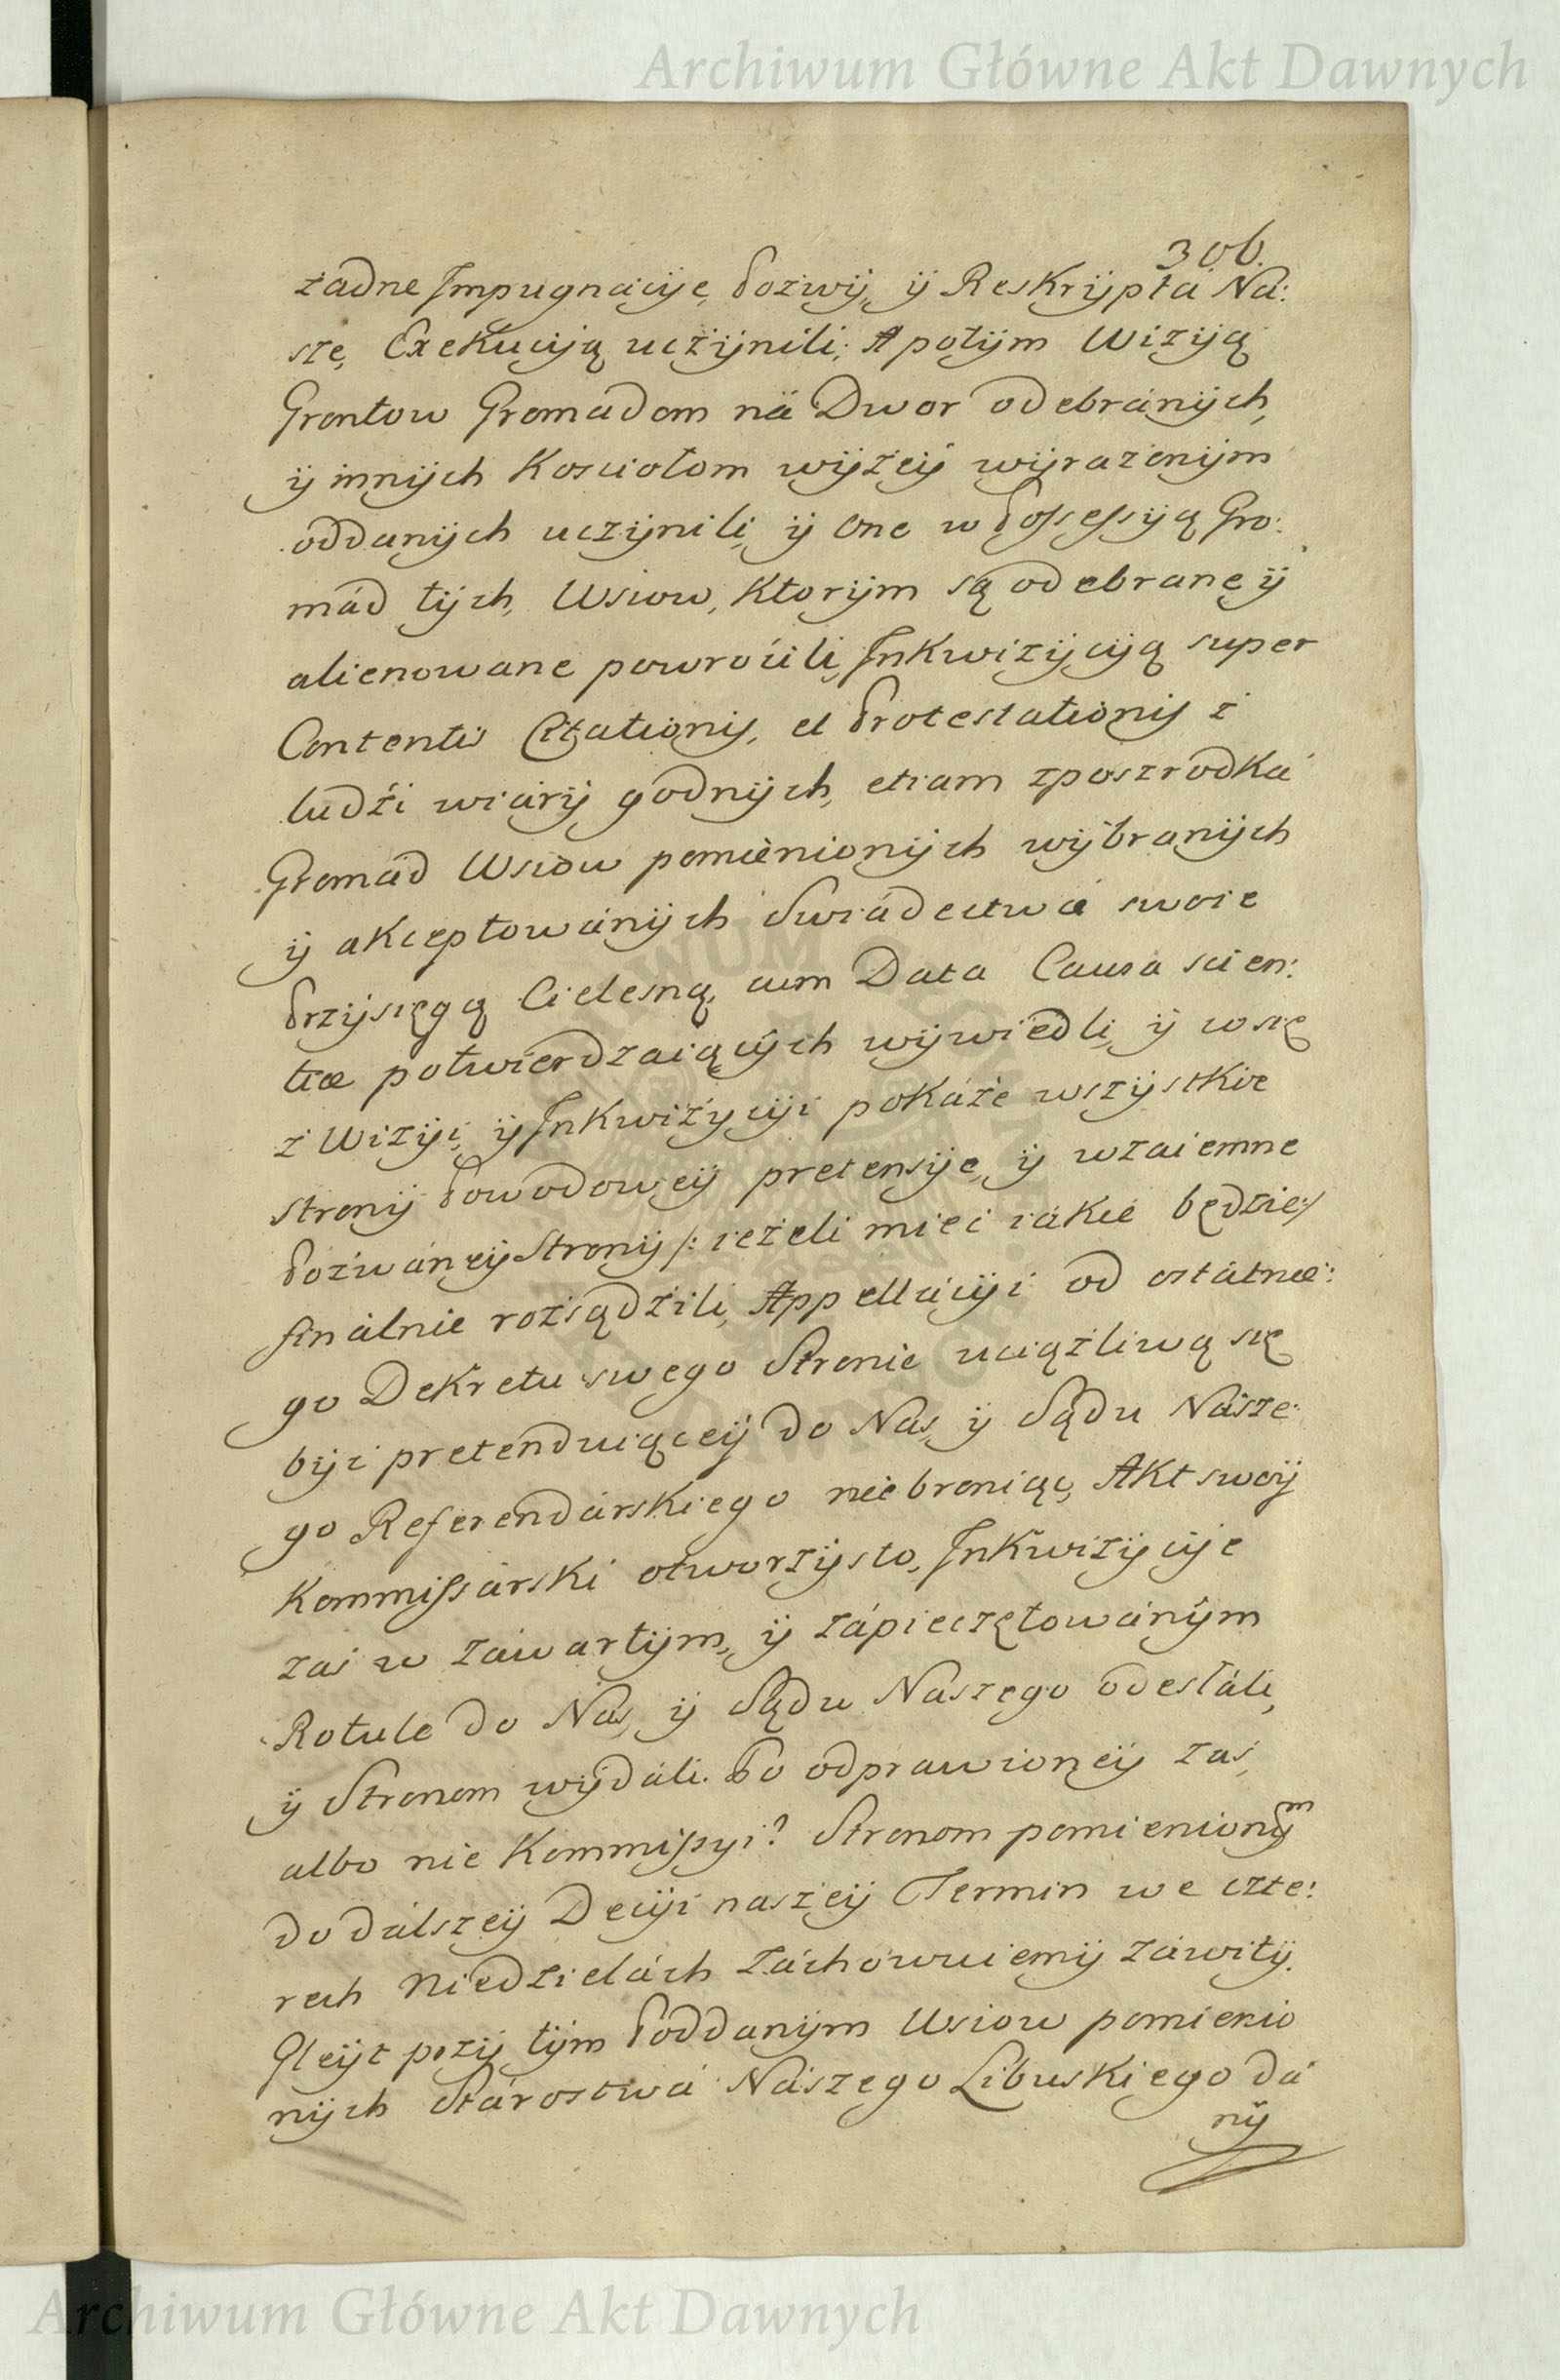 Archiwum Główne Akt Dawnych
306.
żadne Impugnacÿje Pozwÿ, ÿ Reskrÿpta Na:
sze, Exekucÿją uczÿnili; A potÿm Wizÿją
Grontow Gromadom ná Dwor odebránÿch,
ÿ innÿch Kosciołom wÿżeÿ wÿrażonÿm
oddanÿch uczÿnili, ÿ one w Possessÿą Gro:
mád tÿch, Wsiow, Ktorÿm są odebrane, ÿ
alienowane powroćili, Inkwizÿcÿją super
Contentis Citationis, et Protestationis z
ludźi wiárÿ godnÿch, etiam zposzrodká
Gromád Wsiow pomienionÿch wÿbranÿch
ÿ akceptowánÿch Swiádectwá swoie
Przÿsięgą Cielesną, cum Data Causa scien:
tiæ potwierdzaiącÿch wÿwiedli, ÿ co się
z Wizÿi, ÿ Inkwizÿcÿi pokáże wszÿstkie
stronÿ Powodoweÿ pretensÿje, ÿ wzaiemne
Pozwáneÿ Stronÿ /: ieżeli mieć iákie będzie :/
finálnie rozsądźili, Appellácÿi od ostátnie:
go Dekretu swego Stronie uciążliwą się
bÿć pretenduiąceÿ do Nas, ÿ Sądu Násze:
go Referendárskiego nie broniąc, Akt swoÿ
Kommissárski otworzÿsto, Inkwizÿcÿje
zaś w záwartÿm, ÿ zápieczętowánÿm
Rotule do Nas, ÿ Sądu Naszego odesłáli,
ÿ Stronom wÿdáli. Po odprawioneÿ zaś,
albo nie Kommissyi? Stronom pomienionÿm
do dálszeÿ Decÿi naszeÿ Termin we czte:
rech Niedzielách záchowuiemÿ záwitÿ.
Gleÿt przÿ tÿm Poddanÿm Wsiow pomienio
nÿch Stárostwá Nászego Libuskiego dá
nÿ
Archiwum Główne Akt Dawnych